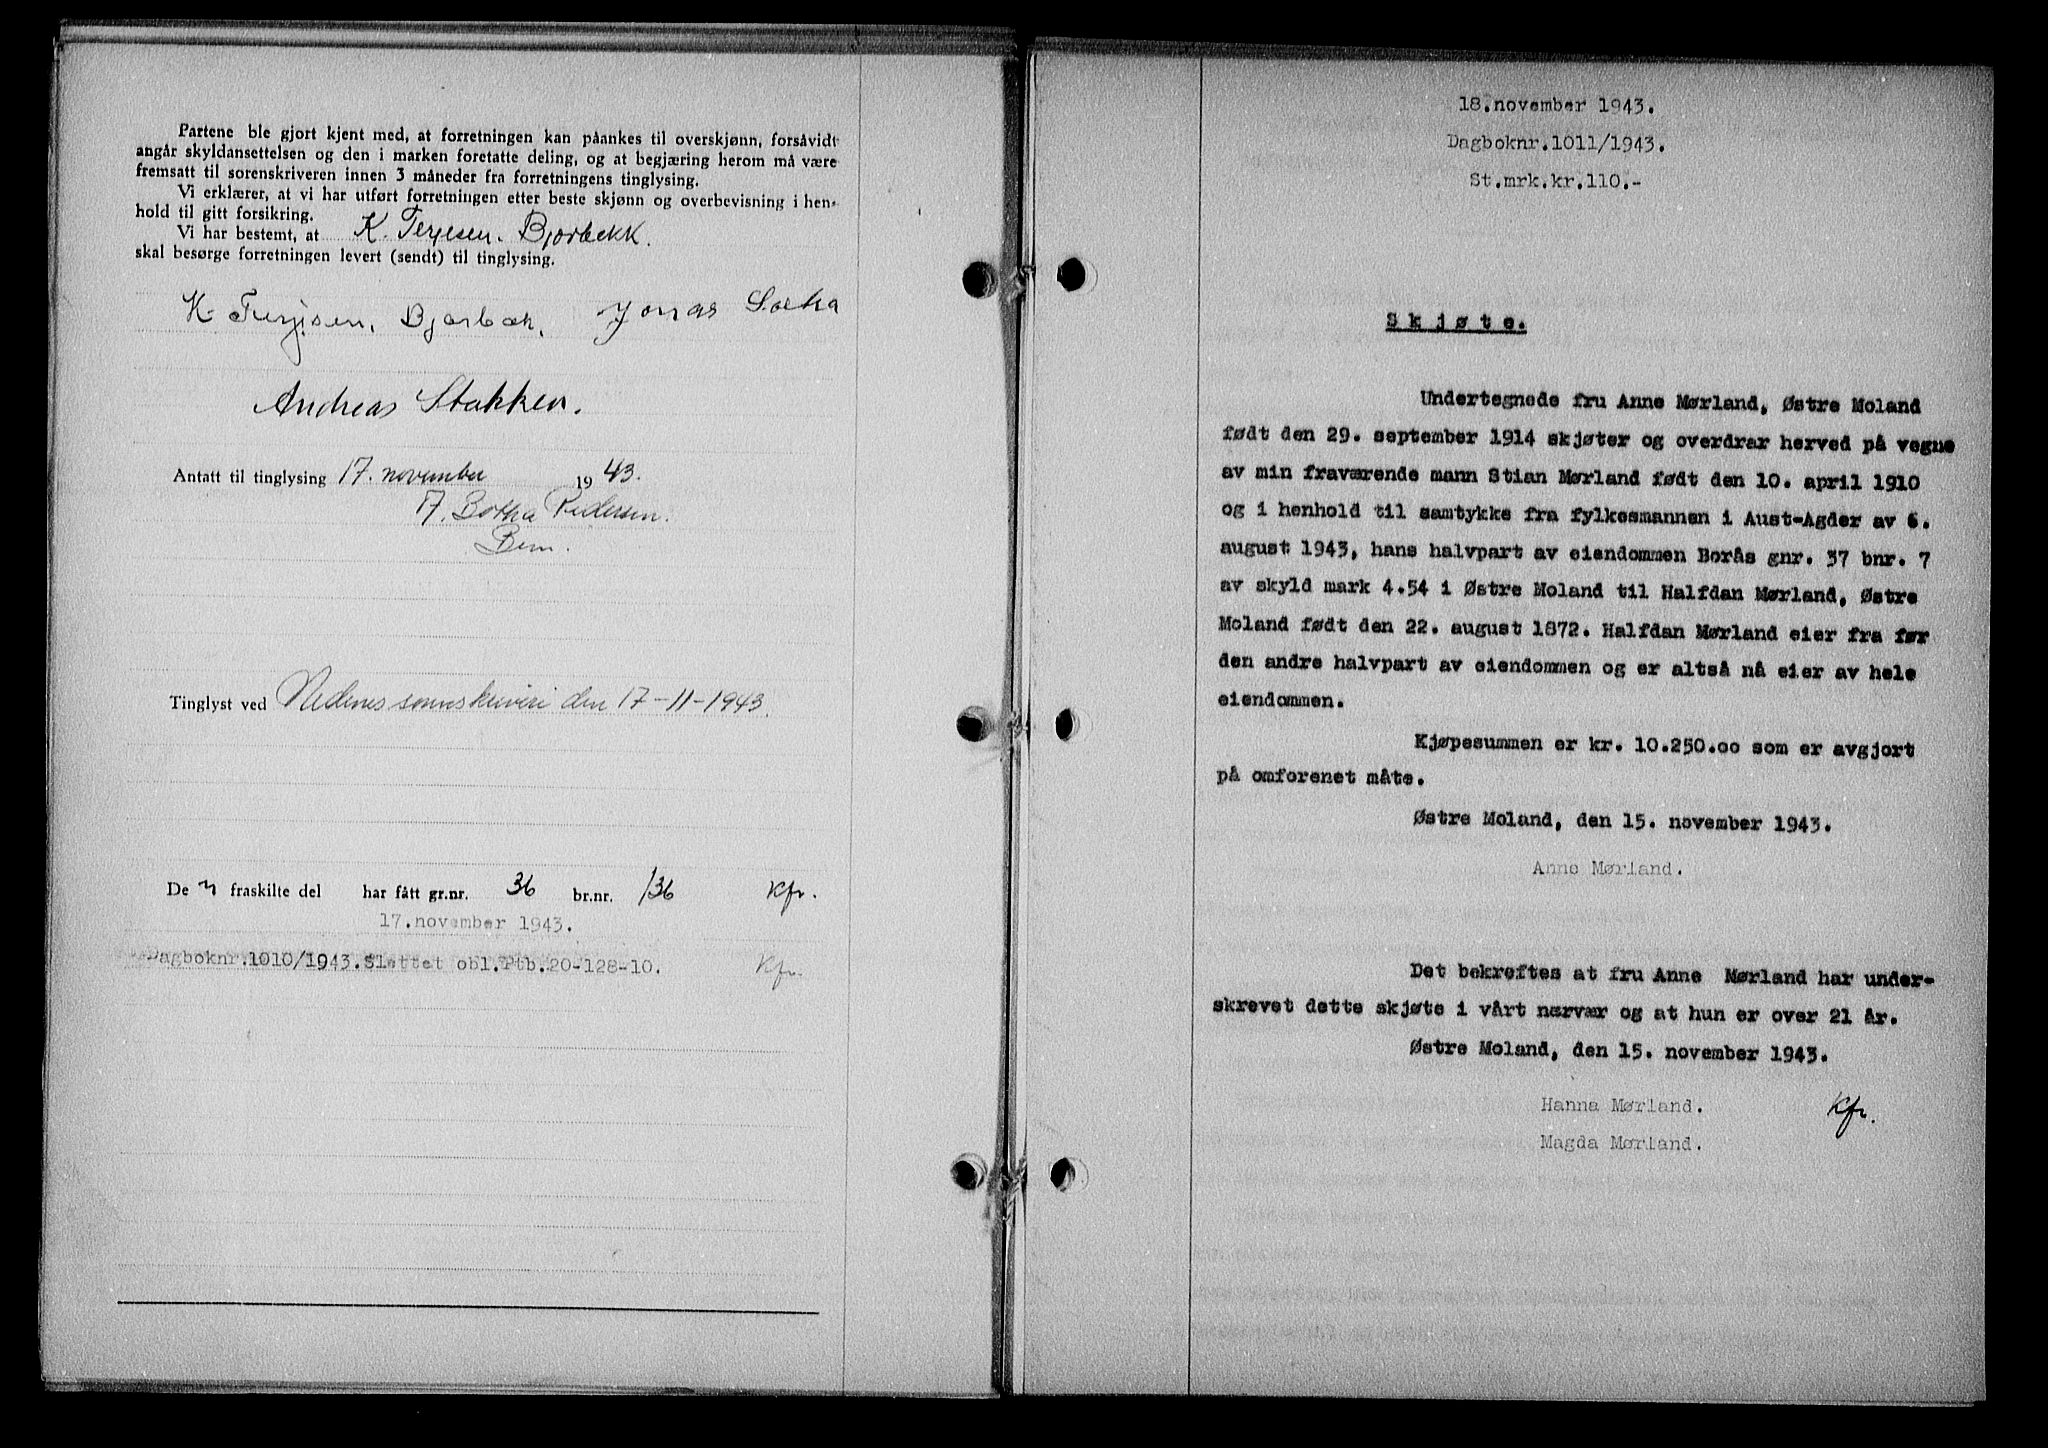 Partene ble gjort kjent med, at forretningen kan påankes til overskjønn, forsåvidt
angår skyldansettelsen og den i marken foretatte deling, og at begjæring herom må være
fremsatt til sorenskriveren innen 3 måneder fra forretningens tinglysing.
Vi erklærer, at vi har utført forretningen etter beste skjønn og overbevisning i hen-
hold til gitt forsikring.
Vi har bestemt, at K. Terjesen. Bjorbekk.
skal besørge forretningen levert (sendt) til tinglysing.
K. Terjesen, Bjorbek. Jonas
Andreas Stokken.
Antatt til tinglysing 17. november 1943.
Botha Pedersen.
Bem.
Tinglyst ved Nedenes sorenskriveri den 17-11-1943.
De n fraskilte del har fått gr.nr. 36 br.nr. 136 Kfr.
17.november 1943.
Dagboknr.1010/1943.Slettet obl.Ptb.20-128-10. Kfr.
18.november 1943.
Dagboknr.1011/1943.
St.mrk.kr.110.-
Skjøte.
Undertegnede fru Anne Mørland, Østre Moland
født den 29. september 1914 skjøter og overdrar herved på vegne
av min fraværende mann Stian Mørland født den 10. april 1910
og i henhold til samtykke fra fylkesmannen i Aust-Agder av 6.
august 1943, hans halvpart av eiendommen Borås gnr. 37 bnr. 7
av skyld mark 4.54 i Østre Moland til Halfdan Mørland, Østre
Moland født den 22. august 1872. Halfdan Mørland eier fra før
den andre halvpart av eiendommen og er altså nå eier av hele
eiendommen.
Kjøpesummen er kr. 10.250.oo som er avgjort
på omforenet måte.
Østre Moland, den 15. november 1943.
Anne Mørland.
Det bekreftes at fru Anne Mørland har under-
skrevet dette skjøte i vårt nærvær og at hun er over 21 år.
Østre Moland, den 15. november 1943.
Hanna Mørland. Kfr.
Magda Mørland.